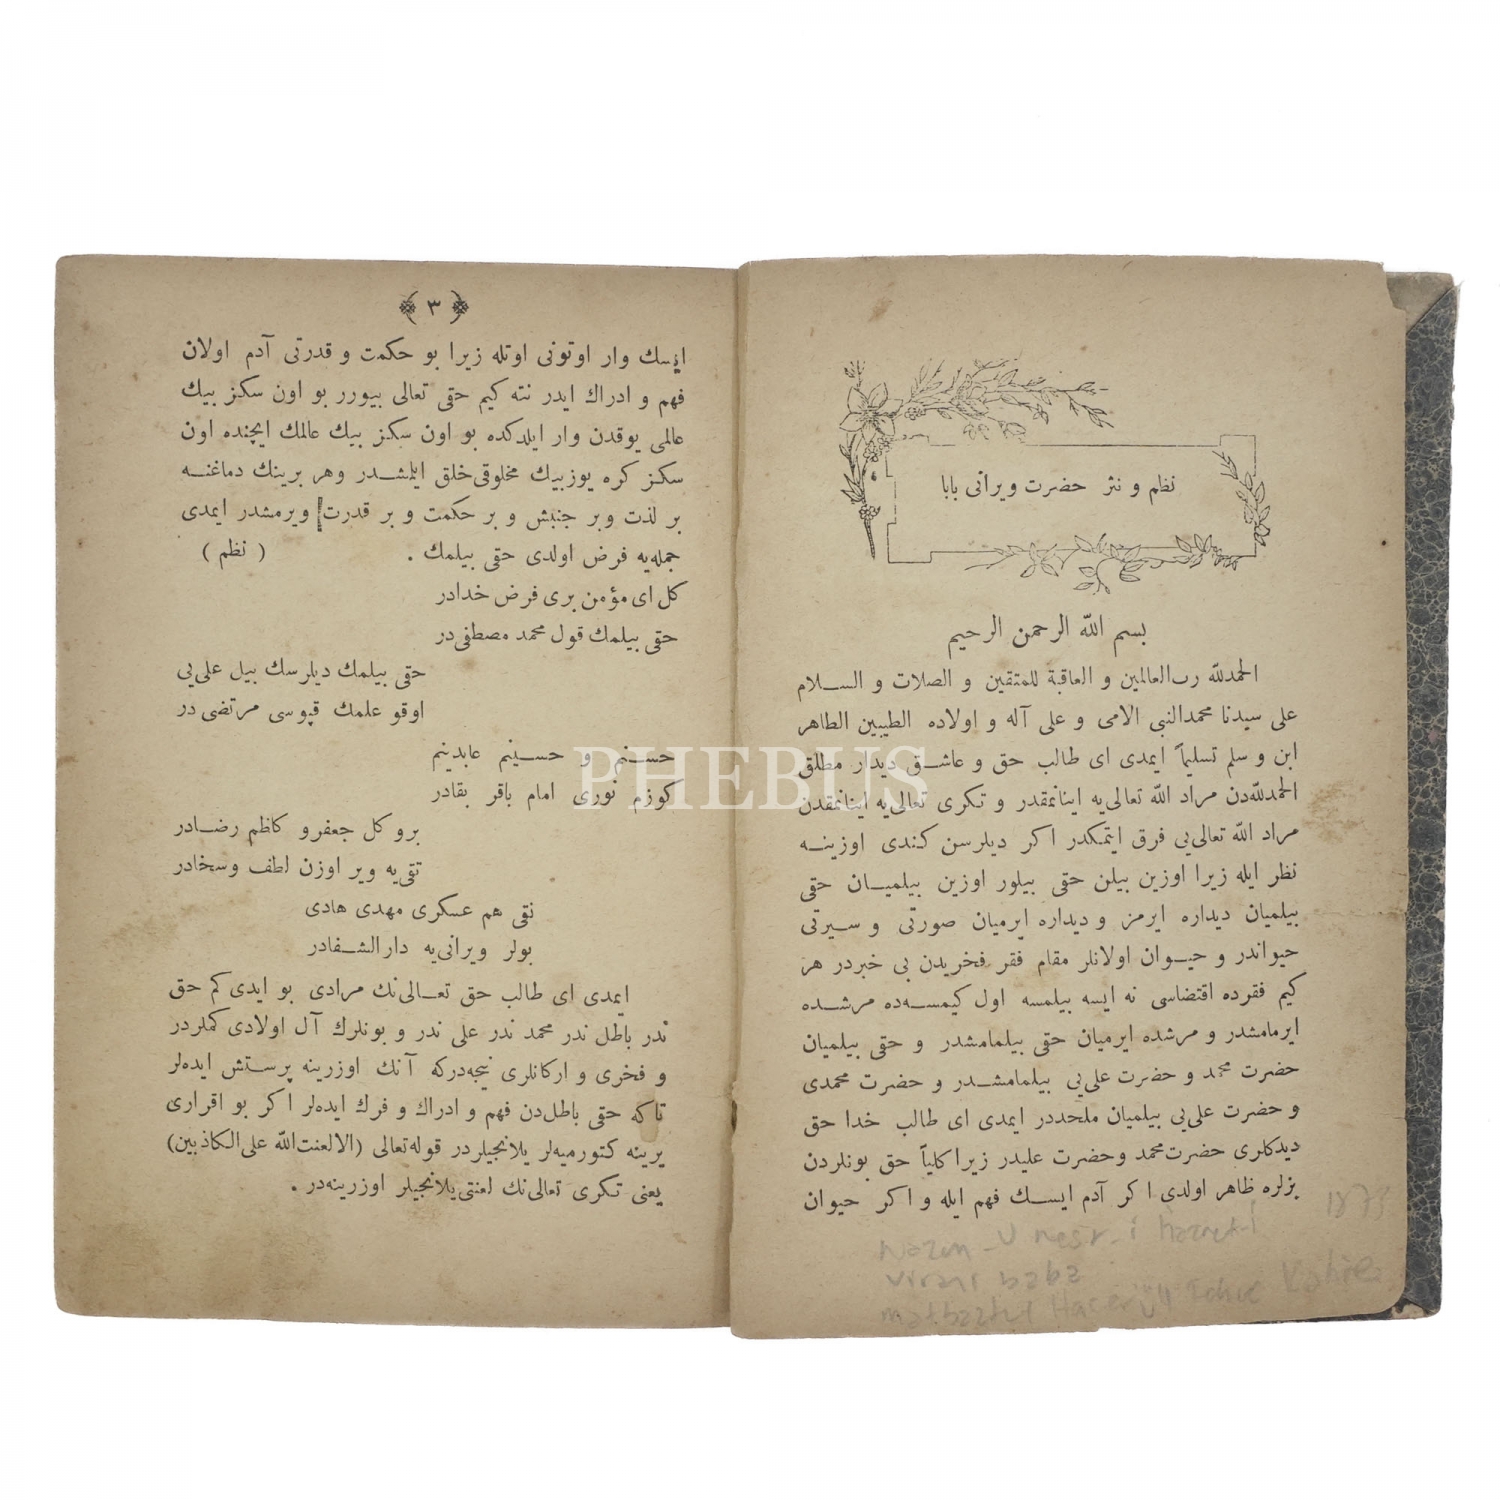 نظم و نثر حضرت ویرانی بابا
بسم الله الرحمن الرحیم
الحمدلله رب العالمین و العاقبة للمتقین و الصلات و الســلام
علی سیدنا محمدالنبی الامی و علی آله و اولاده الطیبین الطاهر
ابن و سلم تسلیماً ایمدی ای طالب حق و عاشــق دیدار مطلق
الحمدلله‌دن مراد الله تعالی‌یه اینانمقدر و تکری تعالی‌یه اینانمقدن
مراد الله تعالی‌یی فرق ایتمکدر اکر دیلرسن کندی اوزینــه
نظر ایله زیرا اوزین بیلن حقی بیلور اوزین بیلمیــان حقی
بیلمیان دیداره ایرمز و دیداره ایرمیان صورتی و ســیرتی
حیواندر و حیــوان اولانلر مقام فقر فخریدن بی خبردر هر
کیم فقرده اقتضاسی نه ایسه بیلمسه اول کیمســه‌ده مرشــده
ایرمامشدر و مرشده ایرمیان حقی بیلمامشدر و حقی بیلمیان
حضرت محمد و حضرت علی‌یی بیلمامشــدر و حضرت محمدی
و حضرت علی‌یی بیلمیان ملحددر ایمدی ای طالب خدا حق
دیدکلری حضرت محمد و حضرت علیدر زیرا کلیاً حق بونلردن
بزلره ظاهر اولدی اکر آدم ایســك فهم ایله و اکر حیوان
nazm-u nesr-i hazret-i
virani baba
1873
﴿ ٣ ﴾
ایسك وار اوتونی اوتله زیرا بو حکمت و قدرتی آدم اولان
فهم و ادراك ایدر نته کیم حقی تعالی بیورر بو اون سکز بیك
عالمی یوقدن وار ایلدکده بو اون سکز بیك عالمك ایچنده اون
سکز کره یوزبیك مخلوقی خلق ایلمشــدر و هر برینك دماغنــه
بر لذت و بر جنبش و بر حکمت و بر قدرت ویرمشدر ایمدی
جمله‌یه فرض اولدی حقی بیلمك . ( نظم )
کل ای مؤمن بری فرض خدادر
حقی بیلمك قول محمد مصطفی‌در
حقی بیلمك دیلرسك بیل علی‌یی
اوقو علمك قپوسی مرتضی در
حســنم و حســینم عابدینم
کوزم نوری امام باقر بقادر
برو کل جعفرو کاظم رضــادر
تقی‌یه ویر اوزن لطف وسخادر
نقی هم عسکری مهدی هادی
بولر ویرانی‌یه دارالشــفادر
ایمدی ای طالب حق تعــالی‌نك مرادی بو ایدی کم حق
ندر باطل ندر محمد ندر علی ندر و بونلرك آل اولادی کملردر
و فخری و ارکانلری نیجه‌درکه آنك اوزرینه پرســتش ایده‌لر
تا که حقی باطل‌دن فهم و ادراك و فرك ایده‌لر اکر بو اقراری
یرینه کتورمیه‌لر یلانجیلردر قوله تعالی (الالعنت‌الله علی‌الکاذبین)
یعنی تکری تعالی‌نك لعنتی یلانجیلر اوزرینه‌در .
PHEBUS